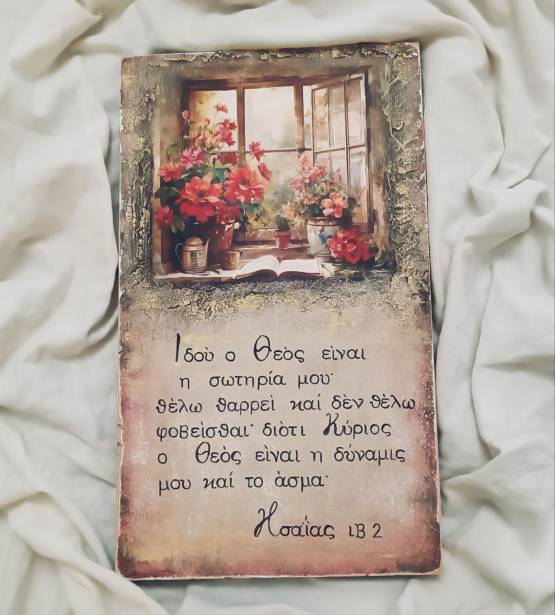 Ιδοὺ ο Θεὸς εἰναι
η σωτηρία μου·
θὲλω θαρρεὶ καί δὲν θὲλω
φοβεὶσθαι· διὸτι Κύριος
ο Θεὸς εἰναι η δύναμις
μου καί το ἀσμα·
Ησαΐας ιΒ 2